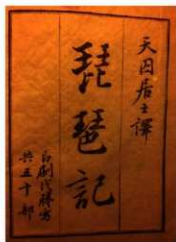 天囚居士譯
琵琶記
共五十部